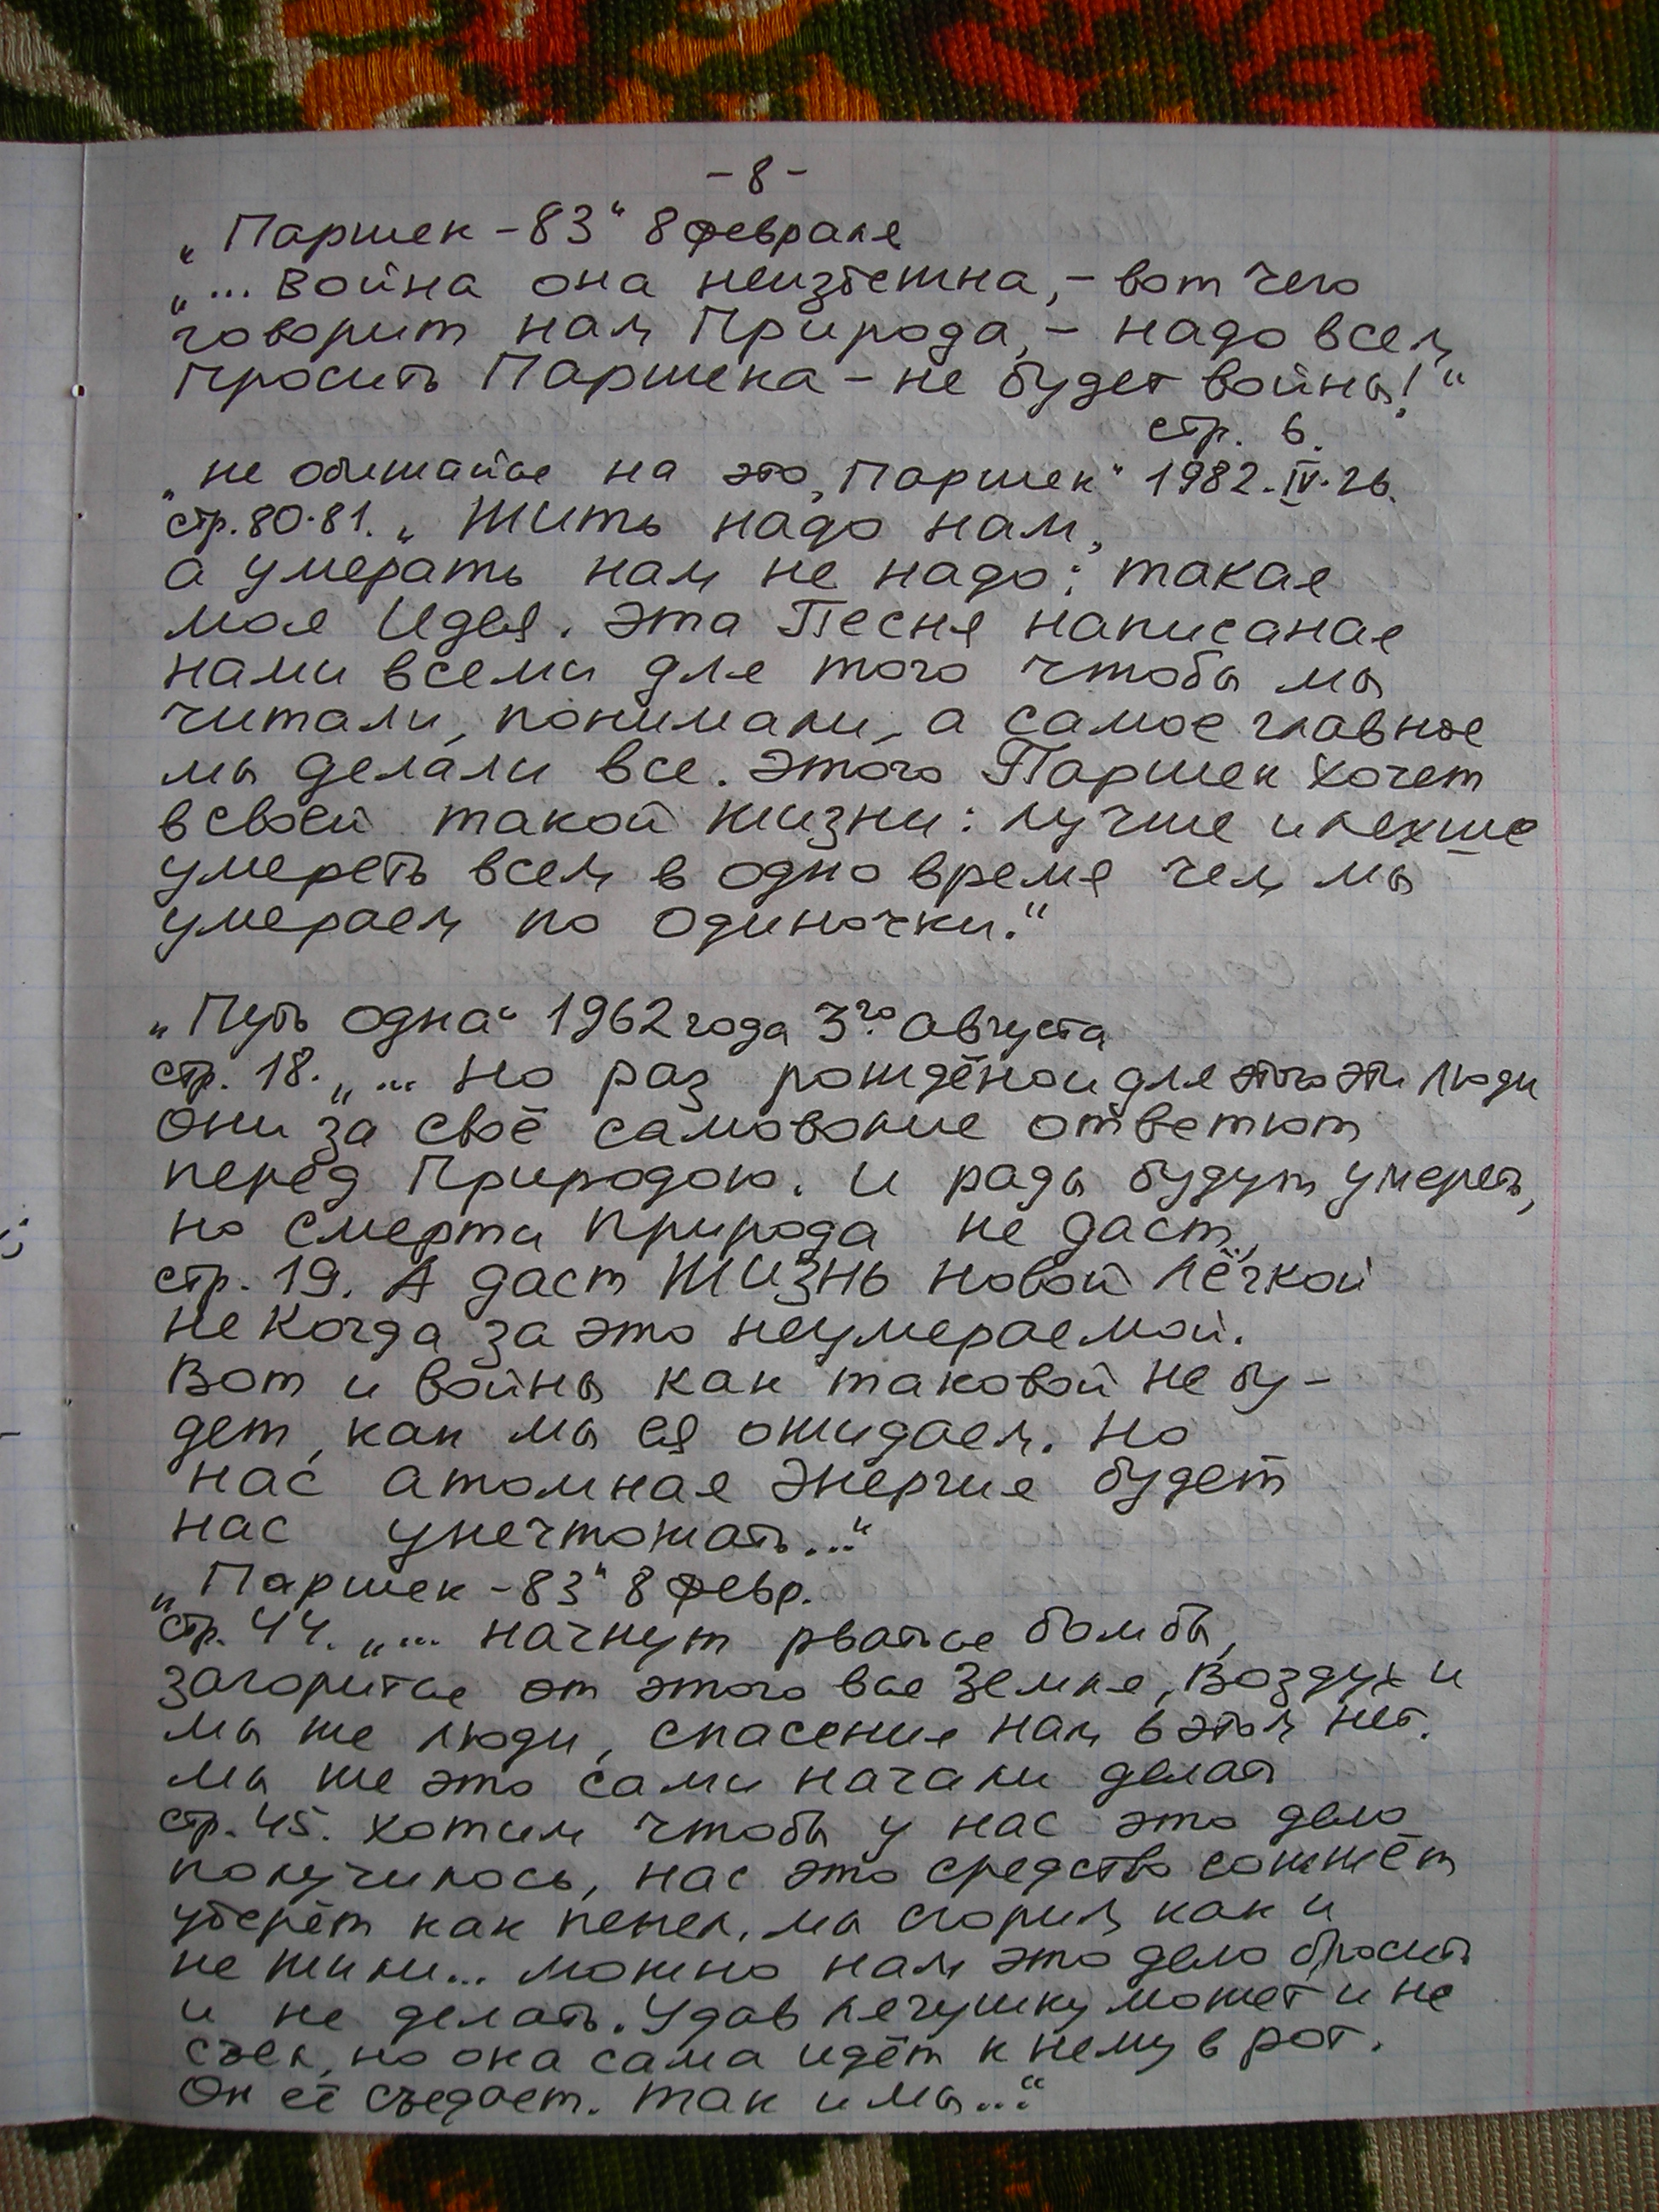 - 8 -
„Паршек - 83“ 8 февраля
„... Война она неизбежна, - вот чего
говорит нам Природа, - надо всем
просить Паршека - не будет войны!“
стр. 6.
„не обижайся на это, Паршек“ 1982. IV. 26.
стр. 80-81. „Жить надо нам,
а умерать нам не надо; такая
моя Идея. Эта Песня написаная
нами всеми для того чтобы мы
читали, понимали, а самое главное
мы делали все. Этого Паршек хочет
в своей такой жизни: лучше и лехше
умереть всем в одно время чем мы
умераем по одиночки.“
„Путь одна“ 1962 года 3го августа
стр. 18. „... но раз рождёнои для этого эти люди
они за своё самоволие ответют
перед Природою. И рады будут умереть,
но смерти природа не даст,
стр. 19. А даст Жизнь новой лёгкой
не когда за это неумераемой.
Вот и войны как таковой не бу-
дет, как мы ея ожидаем. Но
нас атомная энергия будет
нас унечтожать...“
„Паршек - 83“ 8 февр.
стр. 44. „... начнут рваться бомбы,
загорится от этого вся Земля, Воздух и
мы же люди, спасения нам в этом нет.
мы же это сами начали делать
стр. 45. хотим чтобы у нас это дело
получилось, нас это средство сожжёт
уберёт как пепел, мы сгорим как и
не жили... можно нам это дело бросить
и не делать. Удав лягушку может и не
съел, но она сама идёт к нему в рот.
Он её съедает. Так и мы...“